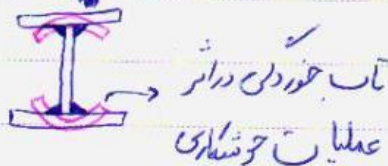 تاب خوردگی در اثر
عملیات جوشکاری